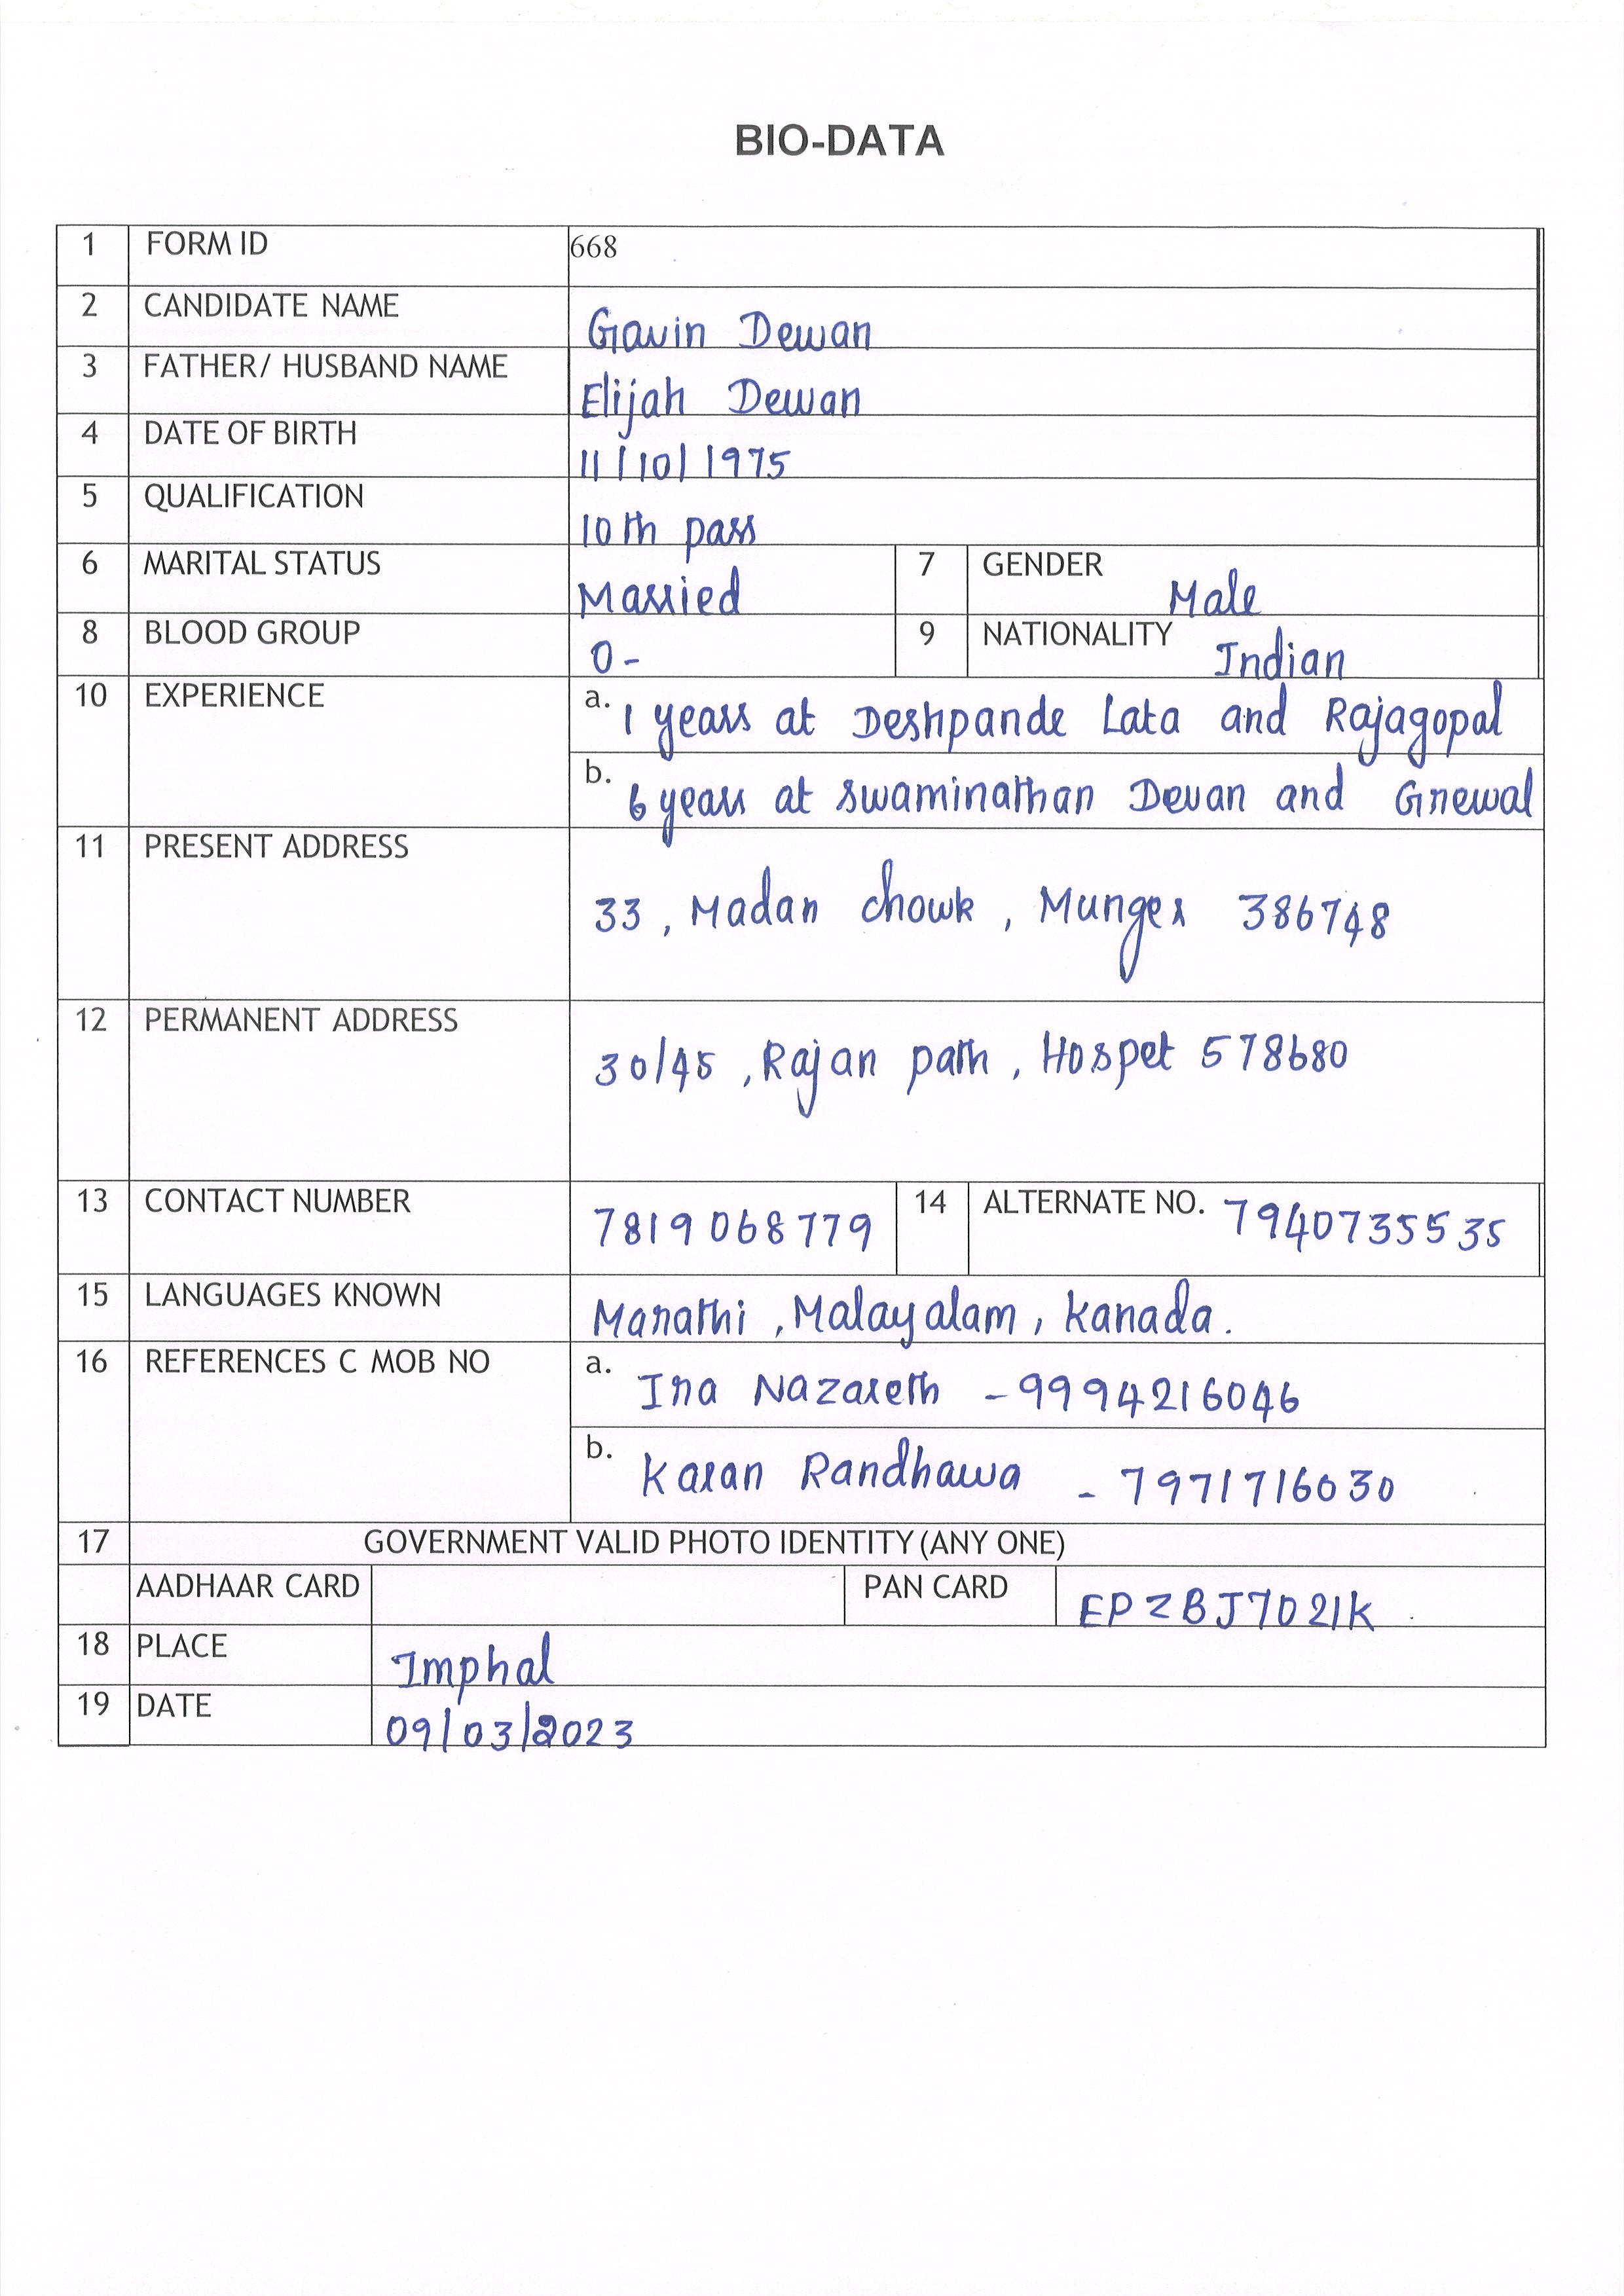 BIO-DATA
1 FORM ID 668
2 CANDIDATE NAME Gavin Dewan
3 FATHER/ HUSBAND NAME Elijah Dewan
4 DATE OF BIRTH 11/10/1975
5 QUALIFICATION 10th pass
6 MARITAL STATUS Married 7 GENDER Male
8 BLOOD GROUP O- 9 NATIONALITY Indian
10 EXPERIENCE a. 1 years at Deshpande Lata and Rajagopal
b. 6 years at Swaminathan Devan and Grewal
11 PRESENT ADDRESS
33, Madan chowk, Munger 386748
12 PERMANENT ADDRESS
30/45, Rajan path, Hospet 578680
13 CONTACT NUMBER 7819068779 14 ALTERNATE NO. 7940735535
15 LANGUAGES KNOWN Marathi, Malayalam, Kanada.
16 REFERENCES C MOB NO a. Ira Nazareth - 9994216046
b. Karan Randhawa - 7971716030
17 GOVERNMENT VALID PHOTO IDENTITY (ANY ONE)
AADHAAR CARD PAN CARD EPZBJ7021K
18 PLACE Imphal
19 DATE 09/03/2023